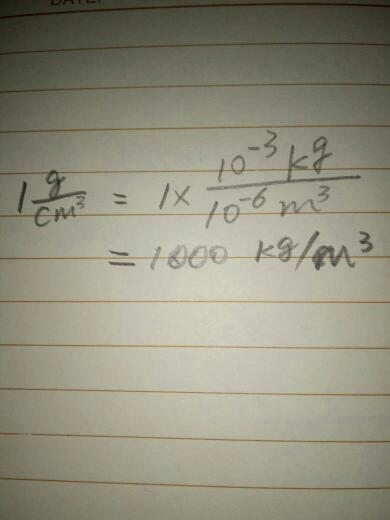 DATE:
1 g/cm³ = 1× 10⁻³ kg / 10⁻⁶ m³
= 1000 kg/m³